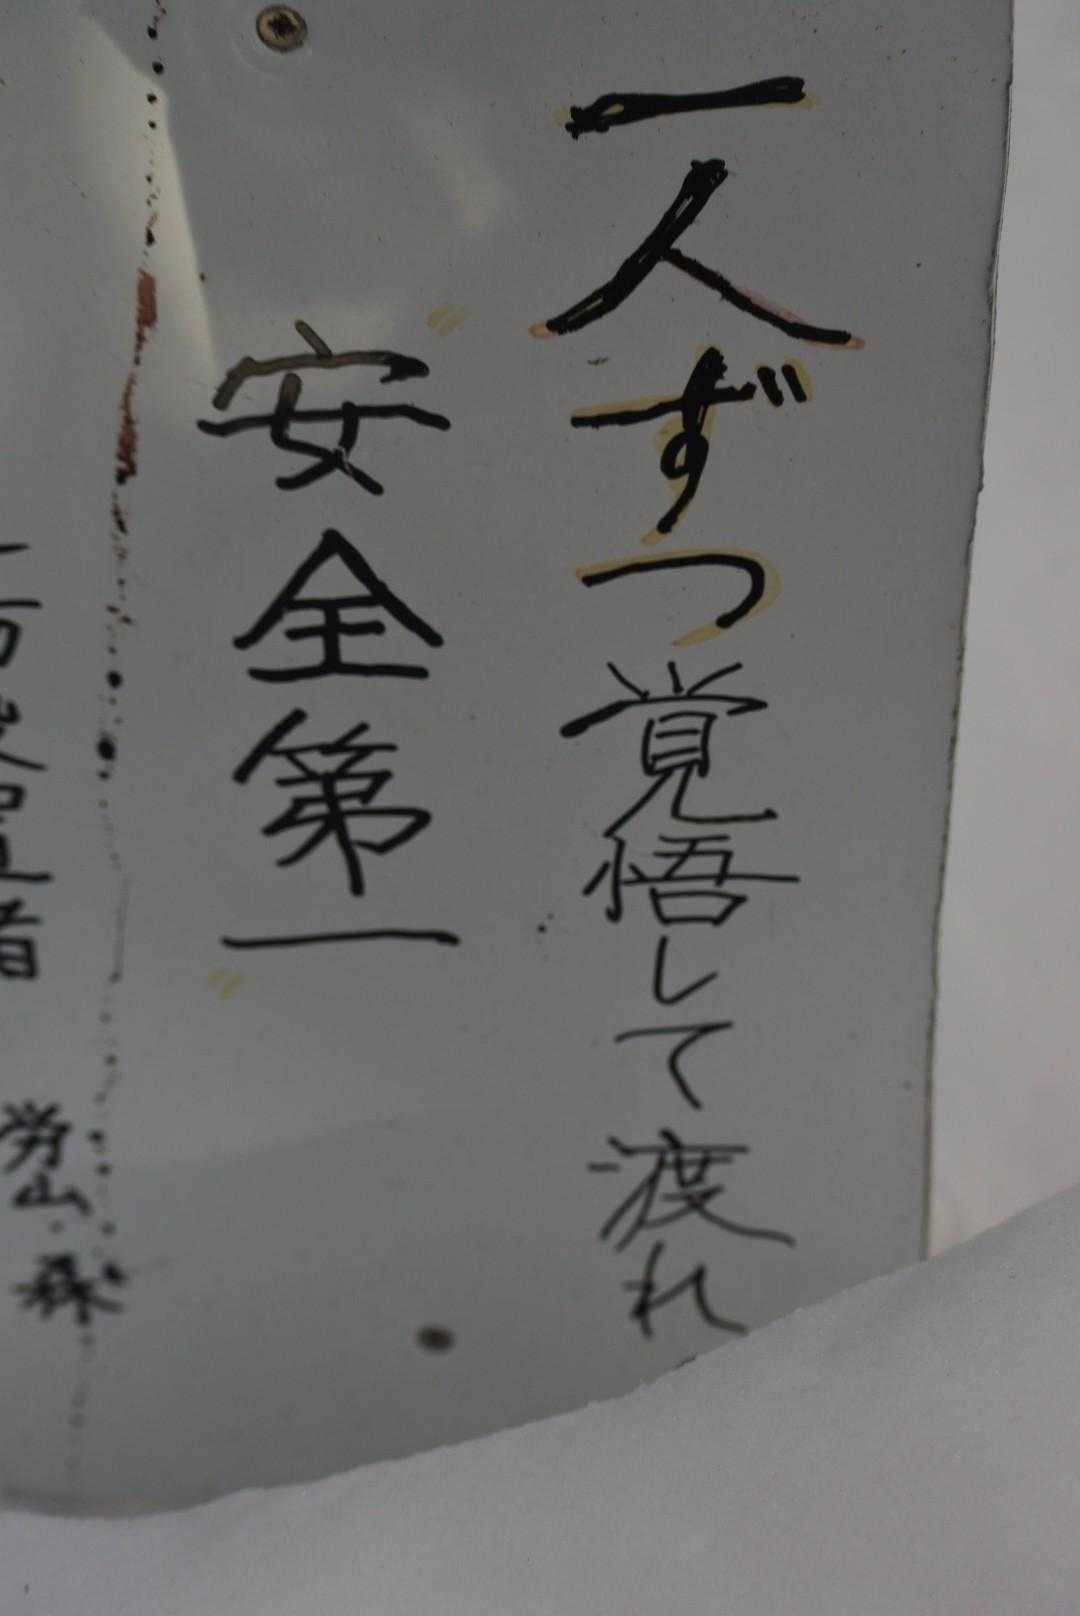 一人ずつ覚悟して渡れ
安全第一
労山・森